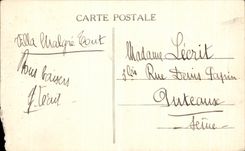 CARTE POSTALE
Villa Malgré Tout
Bons baisers
Madame Lécrit
3 bis Rue Denis Papin
Puteaux
Seine